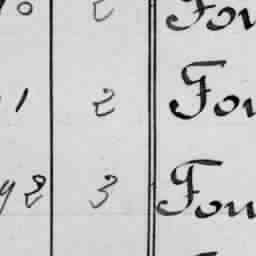 2 Fou
1 2 Fou
98 3 Fou